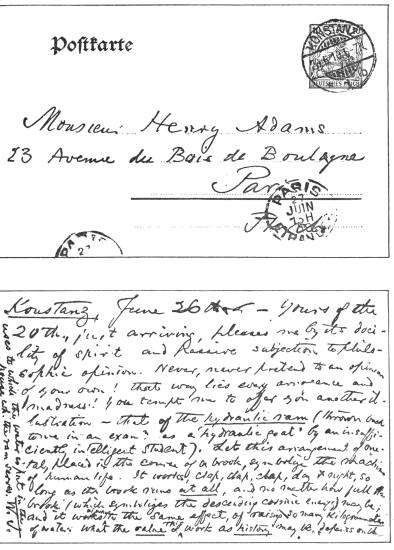 Postkarte
KONSTANZ
Monsieur Henry Adams
23 Avenue du Bois de Boulogne
Paris
PARIS
27
JUIN
ETRANGER
PARIS
Konstanz, June 26th – Yours of the
20th, just arriving, pleases me by its doci-
lity of spirit and passive subjection to philo-
sophic opinion. Never, never pretend to an opinion
of your own! that way lies every annoyance and
madness! You tempt me to offer you another il-
lustration – that of the hydraulic ram (thrown back
to me in an exam as a "hydraulic goat" by an insuffi-
ciently intelligent student). Let this arrangement of me-
tal, placed in the course of a brook, symbolize the machine
of human life. It works, clap, clap, clap, day & night, so
long as the brook runs at all, and no matter how full the
brook (which symbolizes the descending cosmic energy) may be,
and it works to the same effect, of raising so many kilogrammes
of water. What the value of this work as history may be, depends on the
uses to which the water is put in the
house which the ram serves. W. J.